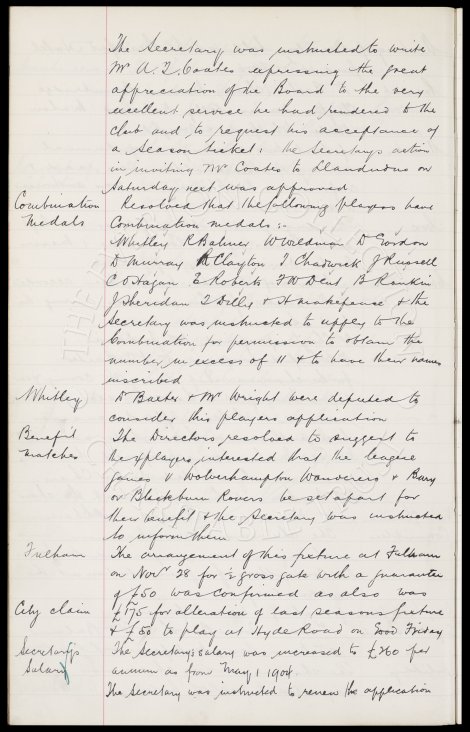 The Secretary was instructed to write
Mr A. T. Coates expressing the great
appreciation of the Board to the very
excellent service he had rendered to the
club and to request his acceptance of
a Season ticket: the Secretary's action
in inviting Mr Coates to Llandudno on
Saturday next was approved
Combination Medals
Resolved that the following players have
Combination medals:-
Whitley R Balmer W Weldman D Gordon
D Murray Clayton T Chadwick J Russell
C O'Hagan E Roberts F W Dent B Rankin
J Sheridan T Dilly & H Makepeace & the
Secretary was instructed to apply to the
Combination for permission to obtain the
number in excess of 11 & to have their names
inscribed
Whitley
Dr Baxter & Mr Wright were deputed to
consider this players application
Benefit matches
The Directors resolved to suggest to
the players interested that the league
games v Wolverhampton Wanderers & Bury
or Blackburn Rovers be set apart for
their benefit & the Secretary was instructed
to inform them
Fulham
The arrangement of this fixture at Fulham
on Novr 28 for ½ gross gate with a guarantee
of £50 was confirmed as also was
City claim
£175 for alteration of last seasons fixture
& £50 to play at Hyde Road on Good Friday
Secretary's Salary
The Secretary's salary was increased to £260 per
annum as from May 1 1904
The Secretary was instructed to renew the application